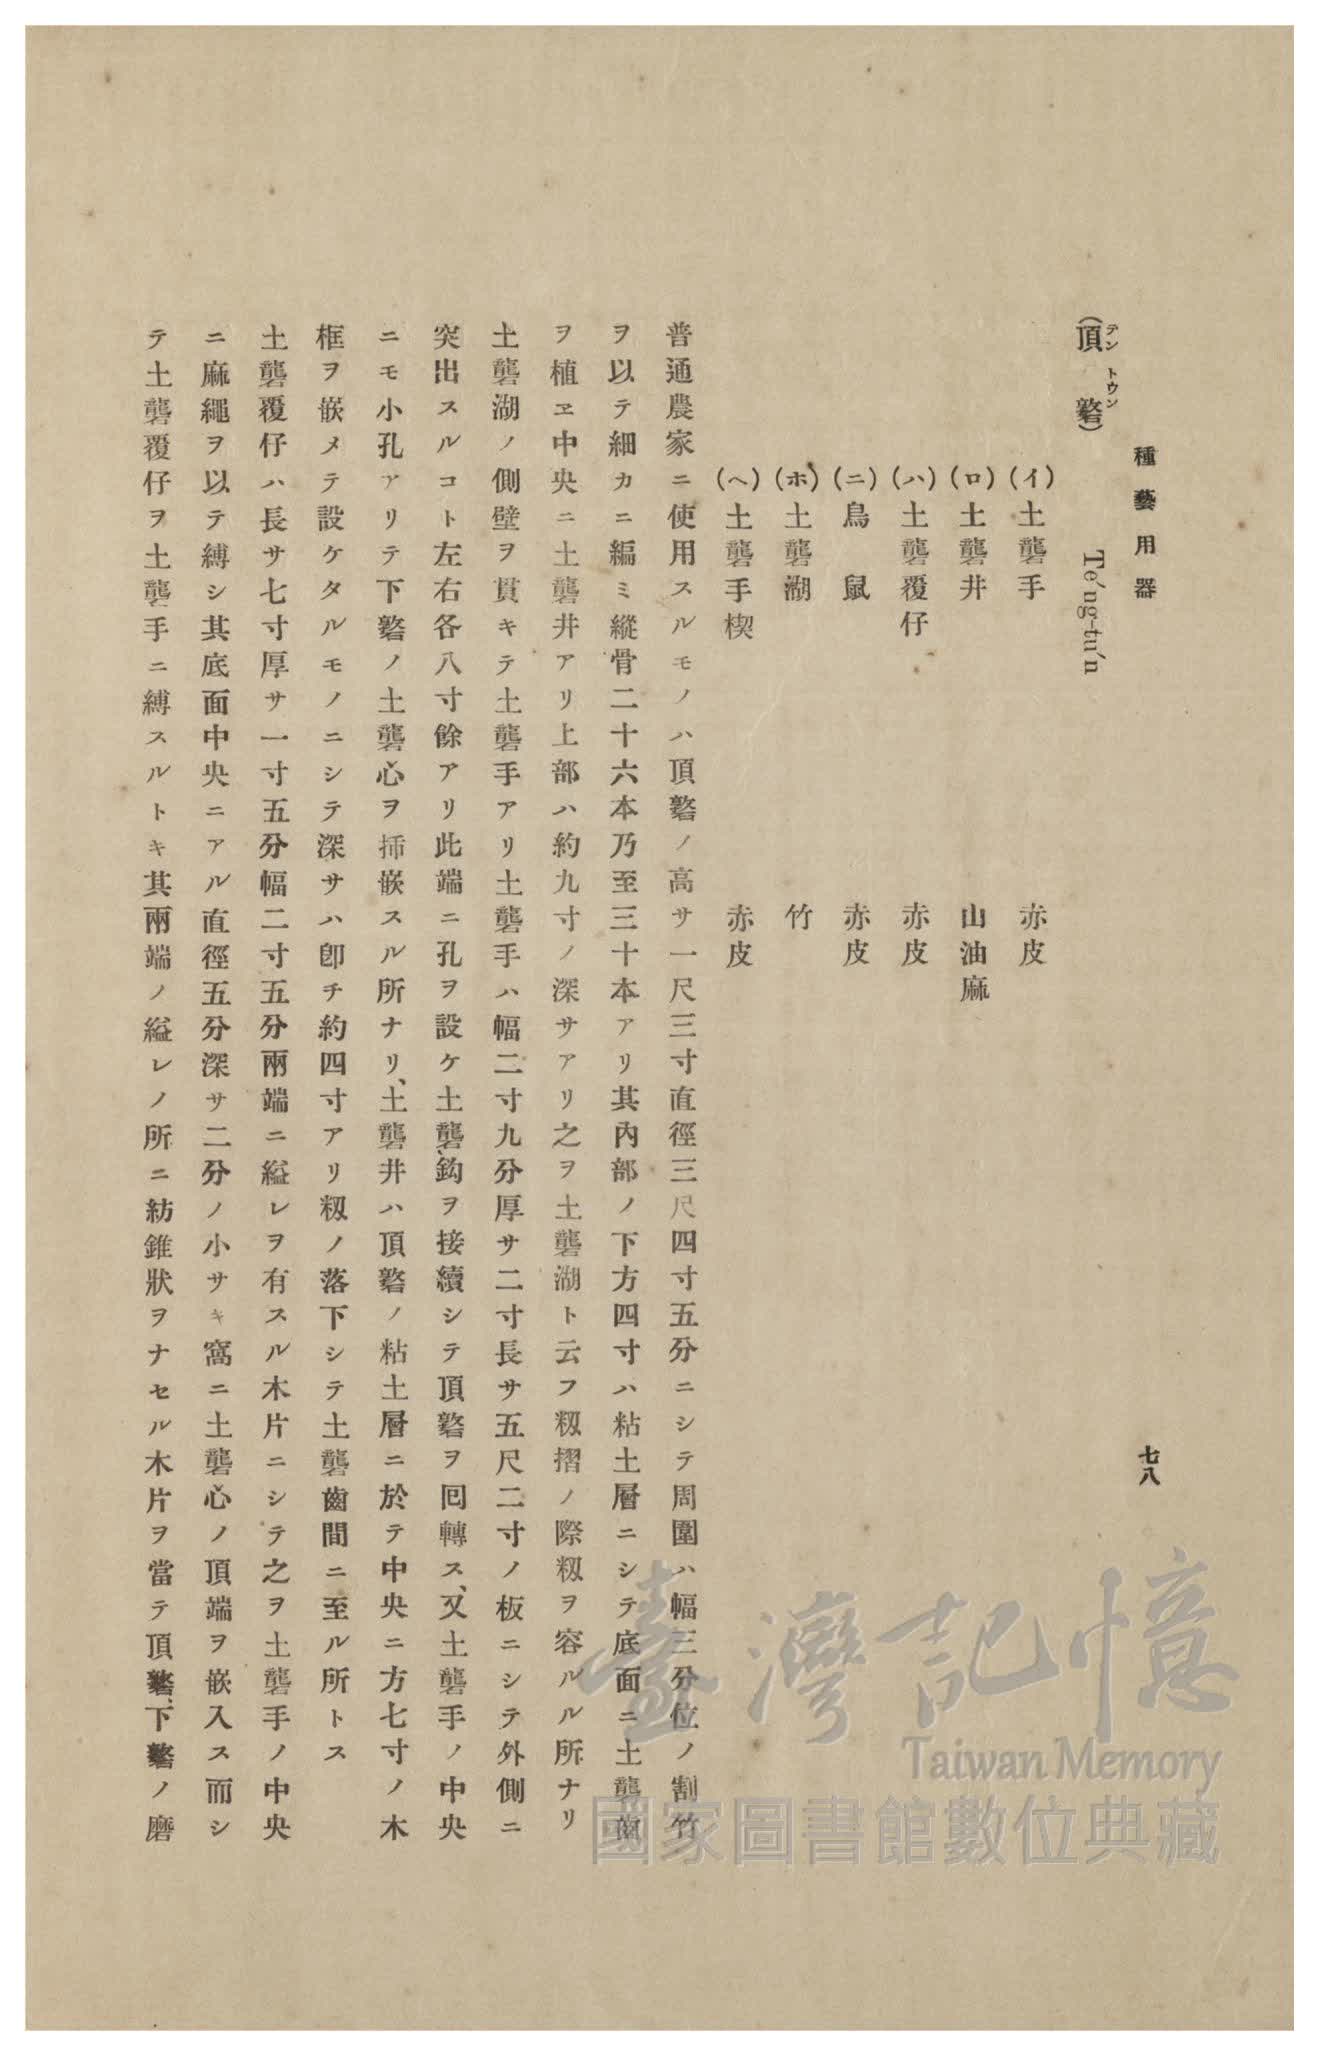 種藝用器
七八
(頂 ) Te´ng-tu´n
テン トウン
(イ)土礱手 赤皮
(ロ)土礱井 山油麻
(ハ)土礱覆仔 赤皮
(ニ)鳥鼠 赤皮
(ホ)土礱湖 竹
(ヘ)土礱手楔 赤皮
普通農家ニ使用スルモノハ頂 ノ高サ一尺三寸直徑三尺四寸五分ニシテ周圍ハ幅三分位ノ割竹
ヲ以テ細カニ編ミ縱骨二十六本乃至三十本アリ其內部ノ下方四寸ハ粘土層ニシテ底面ニ土礱齒
ヲ植ヱ中央ニ土礱井アリ上部ハ約九寸ノ深サアリ之ヲ土礱湖ト云フ籾摺ノ際籾ヲ容ルル所ナリ
土礱湖ノ側壁ヲ貫キテ土礱手アリ土礱手ハ幅二寸九分厚サ二寸長サ五尺二寸ノ板ニシテ外側ニ
突出スルコト左右各八寸餘アリ此端ニ孔ヲ設ケ土礱鈎ヲ接續シテ頂 ヲ囘轉ス、又土礱手ノ中央
ニモ小孔アリテ下 ノ土礱心ヲ揷嵌スル所ナリ、土礱井ハ頂 ノ粘土層ニ於テ中央ニ方七寸ノ木
框ヲ嵌メテ設ケタルモノニシテ深サハ卽チ約四寸アリ籾ノ落下シテ土礱齒間ニ至ル所トス
土礱覆仔ハ長サ七寸厚サ一寸五分幅二寸五分兩端ニ縊レヲ有スル木片ニシテ之ヲ土礱手ノ中央
ニ麻繩ヲ以テ縛シ其底面中央ニアル直徑五分深サ二分ノ小サキ窩ニ土礱心ノ頂端ヲ嵌入ス而シ
テ土礱覆仔ヲ土礱手ニ縛スルトキ其兩端ノ縊レノ所ニ紡錐狀ヲナセル木片ヲ當テ頂 、下 ノ磨
臺灣記憶
Taiwan Memory
國家圖書館數位典藏